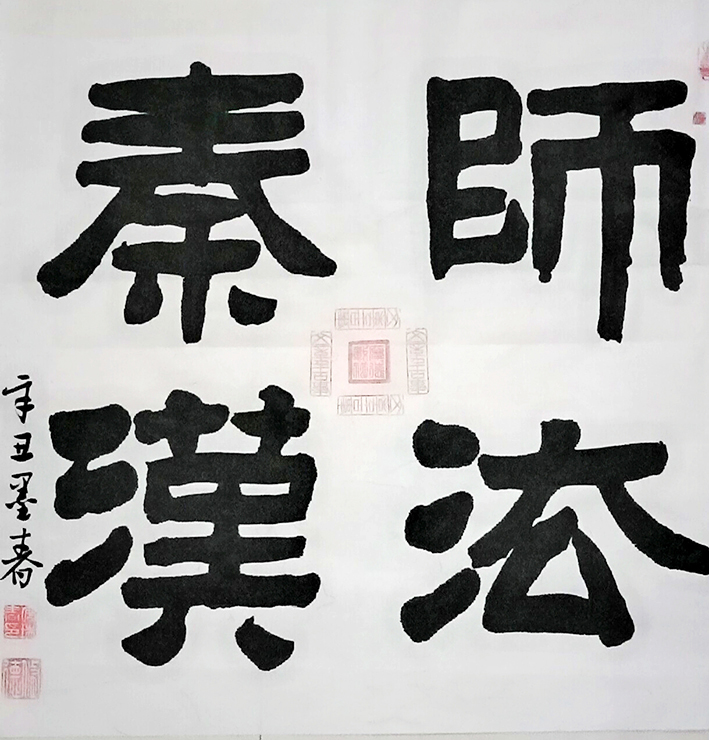 師法
秦漢
辛丑墨春